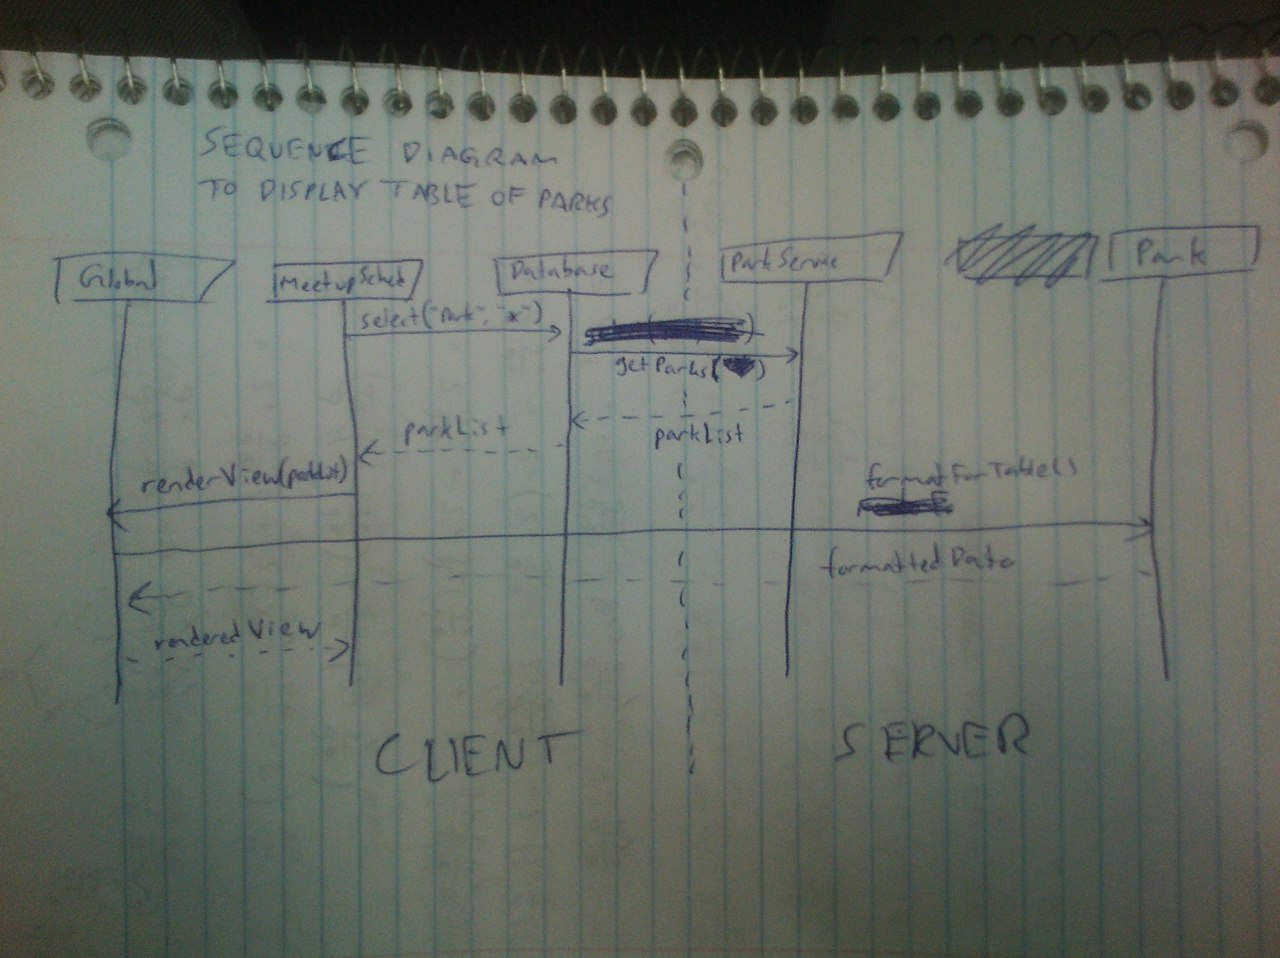 SEQUENCE DIAGRAM
TO DISPLAY TABLE OF PARKS
Global
MeetupSched
Database
ParkService
Park
select("Park", "*")
getParks( )
parkList
parkList
renderView(parkList)
formatForTable()
formattedData
renderedView
CLIENT
SERVER